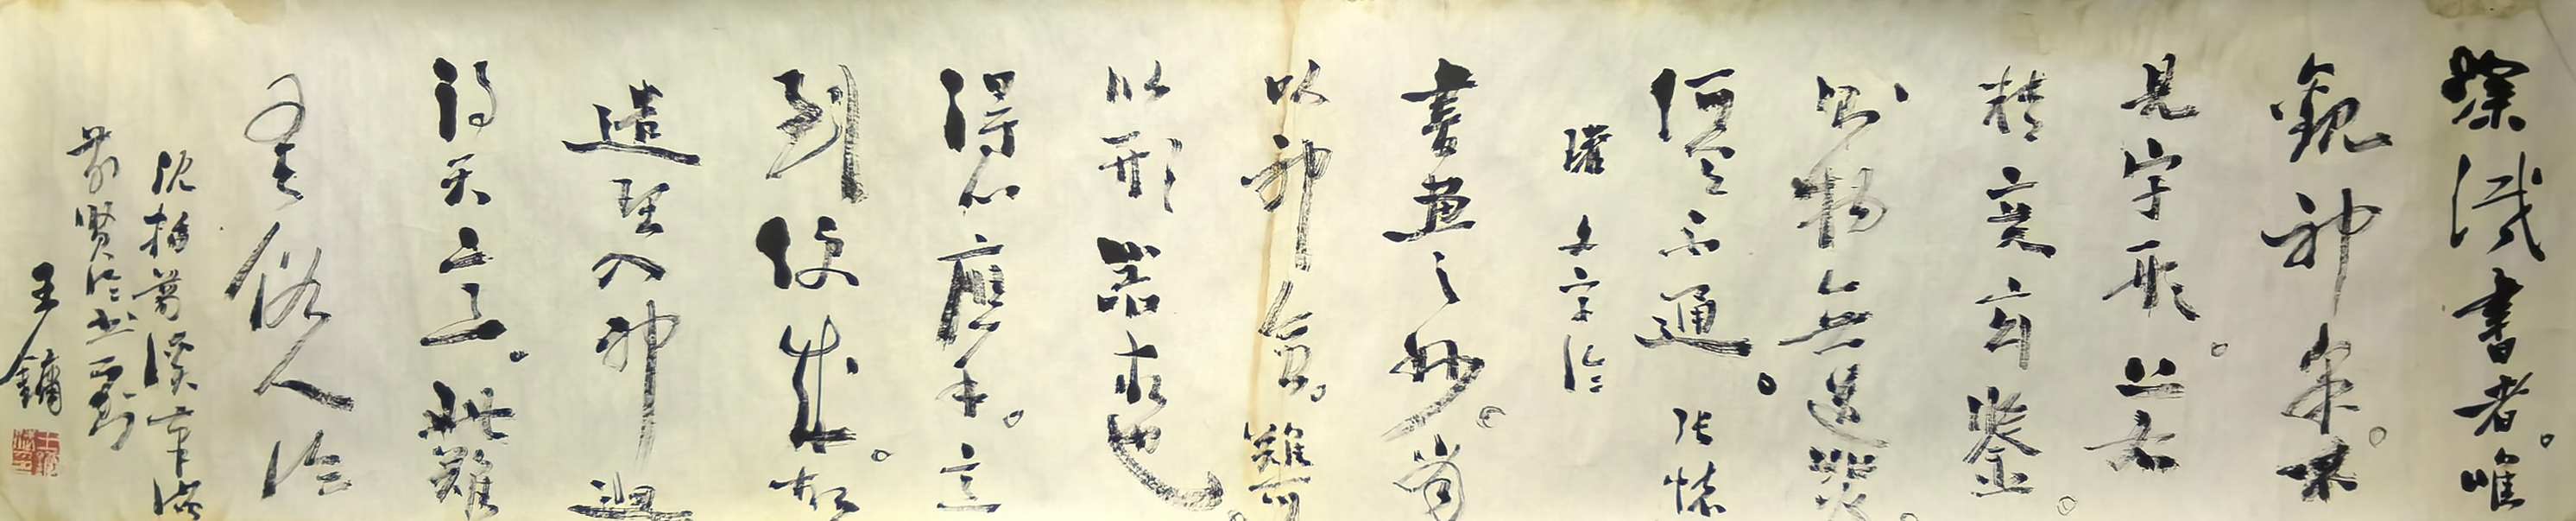 深識書者。唯
觀神采。不
見字形。若
精意玄鑒。
則物無遺照。
何有不通。張懷
瓘文字論
書畫之妙。當
以神會。難可
以形器求也。
得心應手。意
到便成。故
造理入神。迥
得天意。此難
可与俗人論
沈括夢溪筆談
前賢論書二則
王鏞